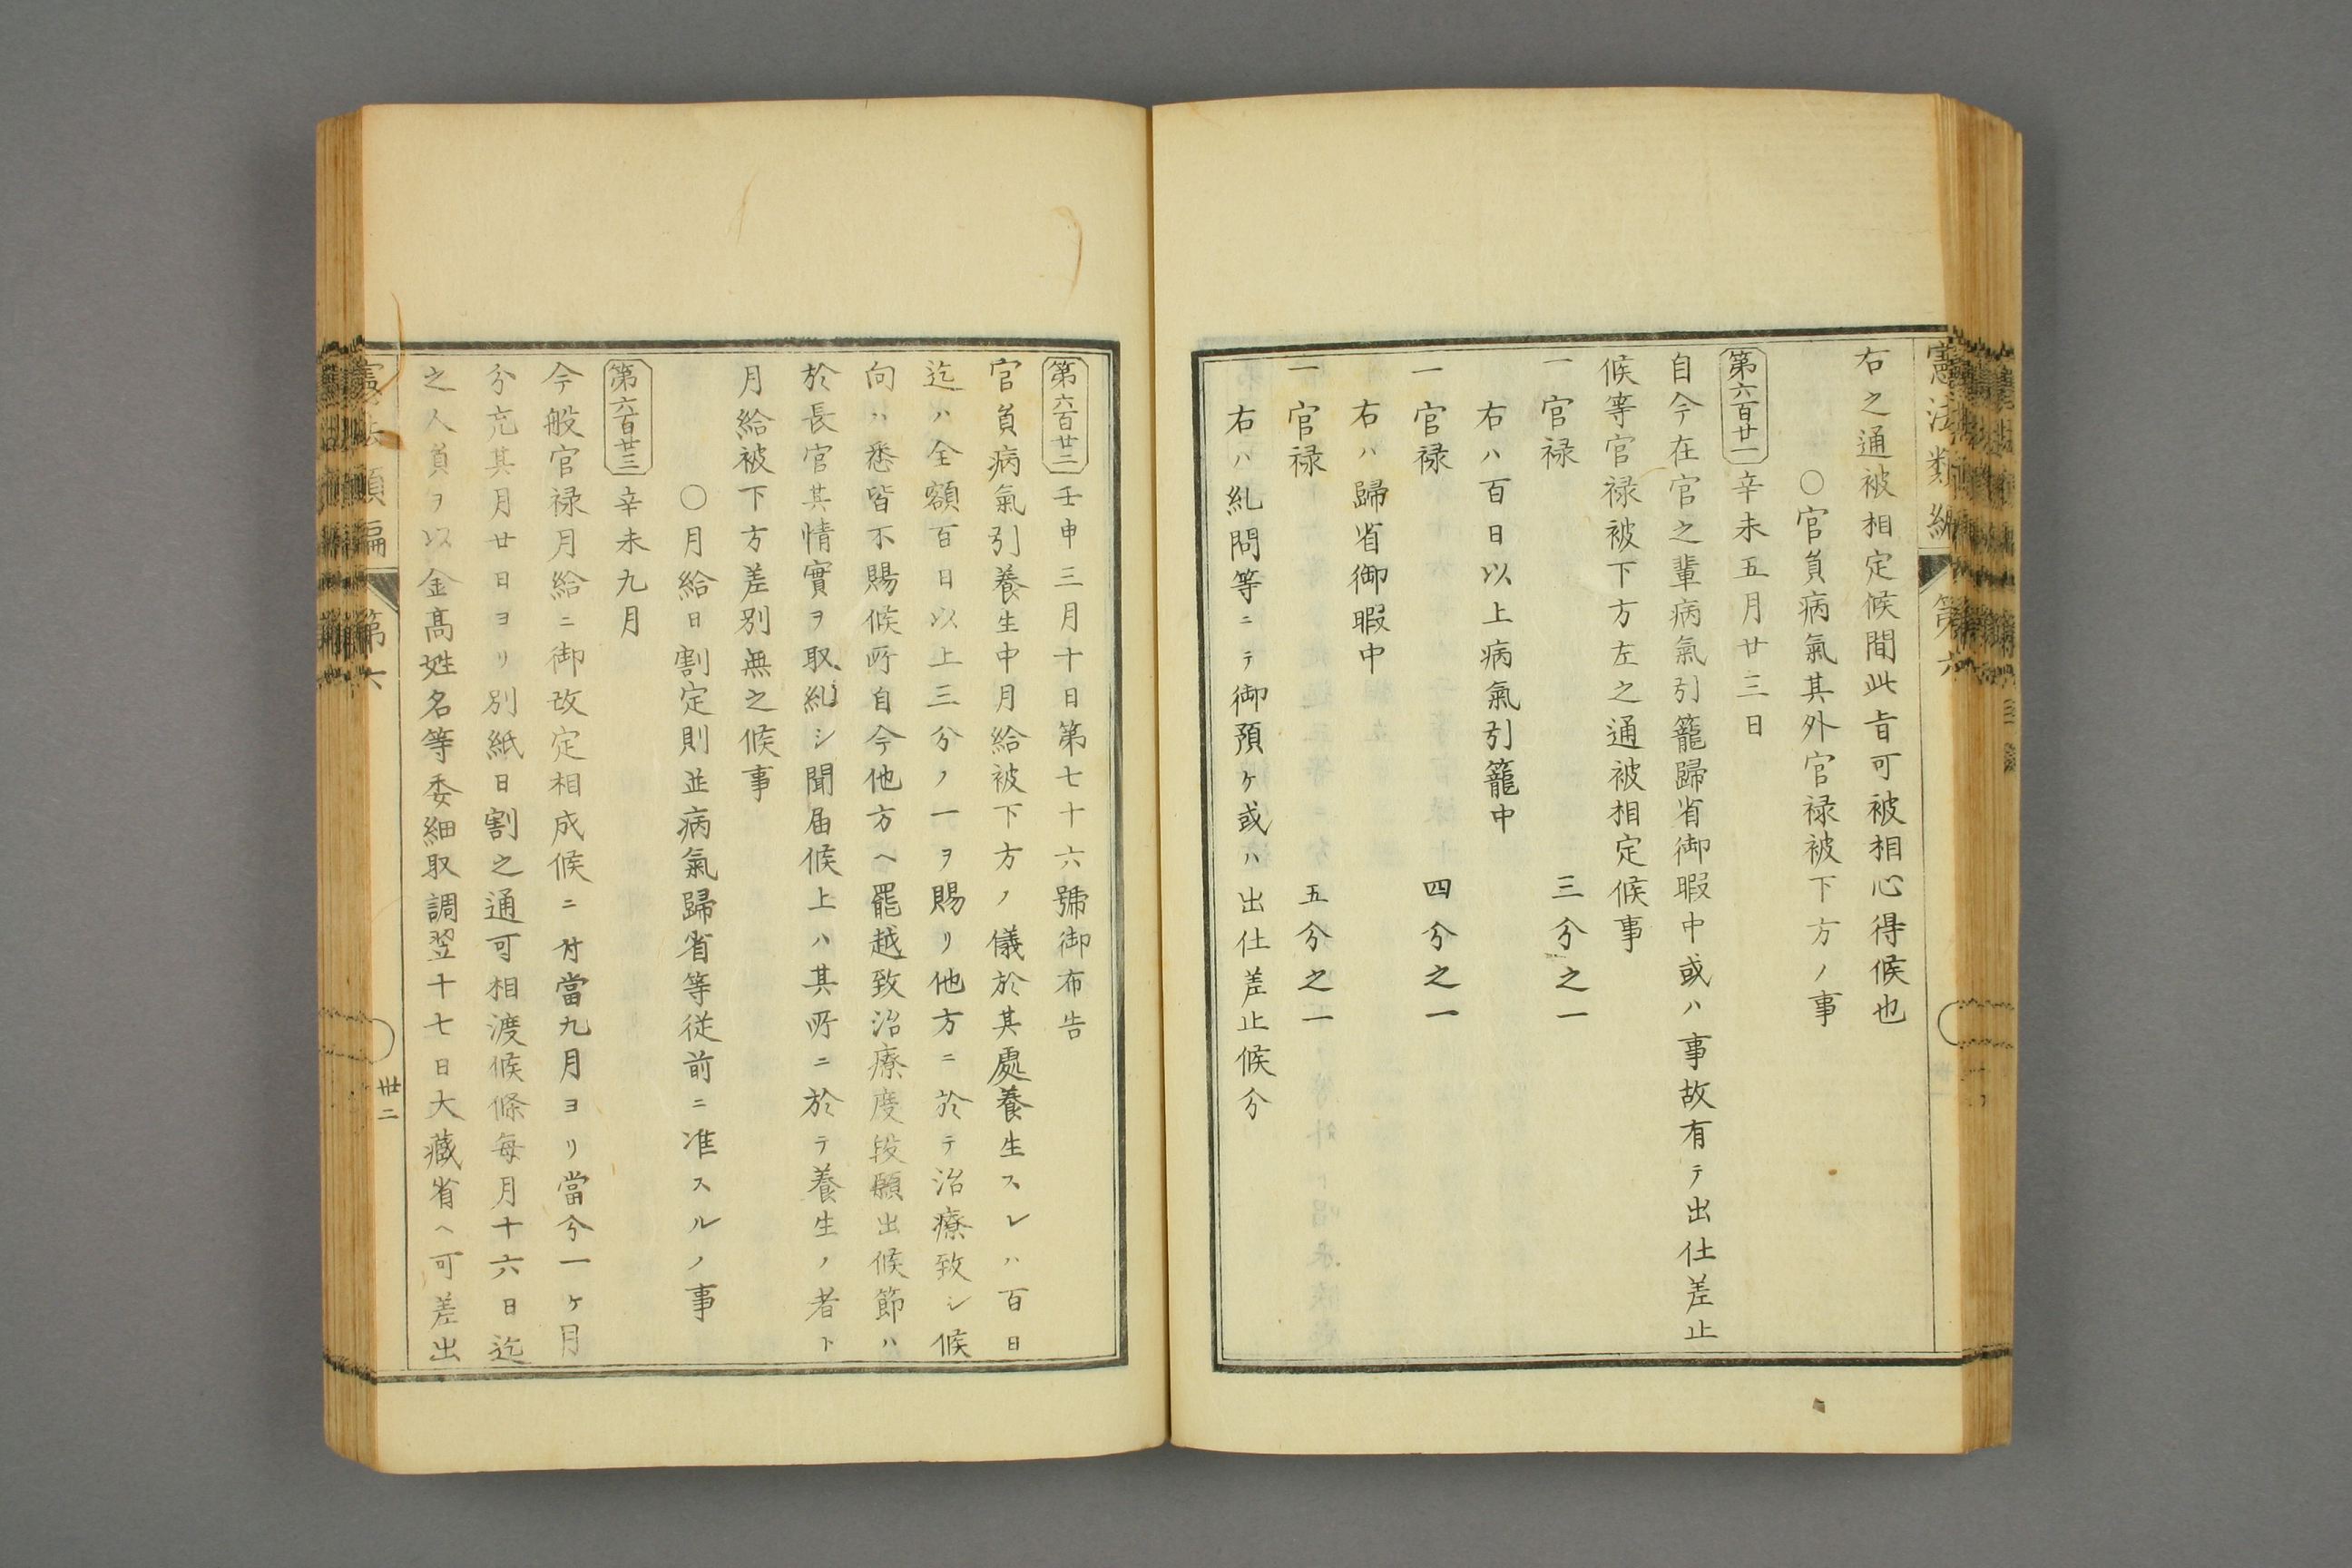 憲法類編
第六
右之通被相定候間此旨可被相心得候也
○官負病氣其外官禄被下方ノ事
第六百廿一 辛未五月廿三日
自今在官之輩病氣引籠歸省御暇中或ハ事故有テ出仕差止
候等官禄被下方左之通被相定候事
一官禄 三分之一
右ハ百日以上病氣引籠中
一官禄 四分之一
右ハ歸省御暇中
一官禄 五分之一
右ハ糺問等ニテ御預ケ或ハ出仕差止候分
第六百廿二 壬申三月十日第七十六號御布告
官負病氣引養生中月給被下方ノ儀於其處養生スレハ百日
迄ハ全額百日以上三分ノ一ヲ賜リ他方ニ於テ治療致シ候
向ハ悉皆不賜候所自今他方ヘ罷越致治療度段願出候節ハ
於長官其情實ヲ取糺シ聞届候上ハ其所ニ於テ養生ノ者ト
月給被下方差別無之候事
○月給日割定則並病氣歸省等従前ニ准スルノ事
第六百廿三 辛未九月
今般官禄月給ニ御改定相成候ニ付當九月ヨリ當分一ケ月
分充其月廿日ヨリ別紙日割之通可相渡候條毎月十六日迄
之人負ヲ以金髙姓名等委細取調翌十七日大藏省ヘ可差出
憲法類編
第六
卅二